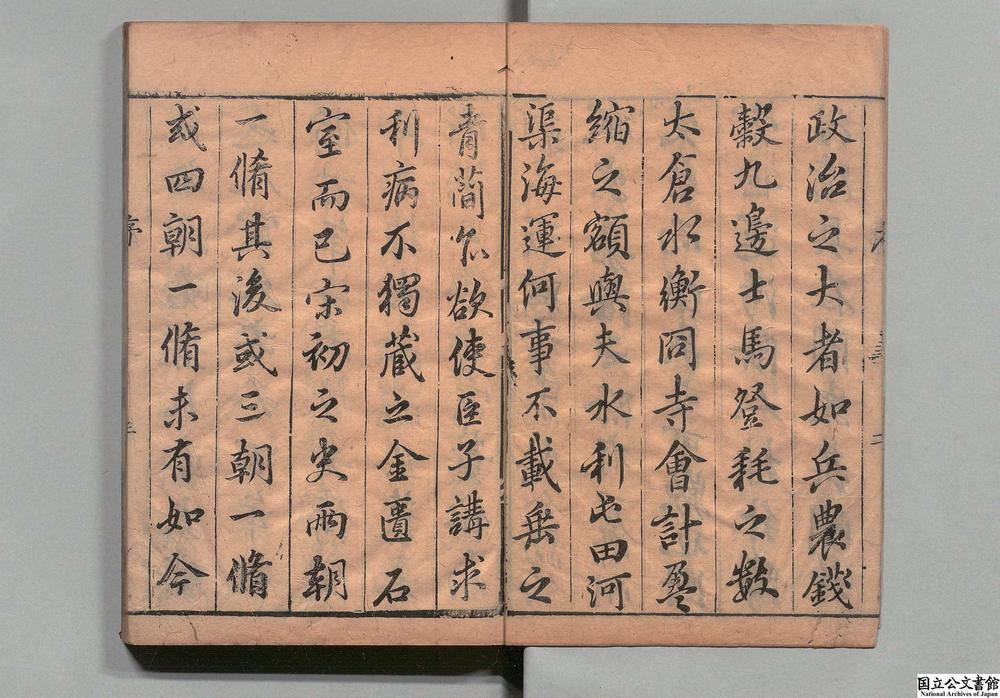 政治之大者如兵農錢
穀九邊士馬登耗之數
太倉水衡冏寺會計盈
縮之額與夫水利屯田河
渠海運何事不載垂之
青簡尒欲使臣子講求
利病不獨蔵之金匱石
室而已宋初之史兩朝
一脩其後或三朝一脩
或四朝一脩未有如今
序
国立公文書館
National Archives of Japan